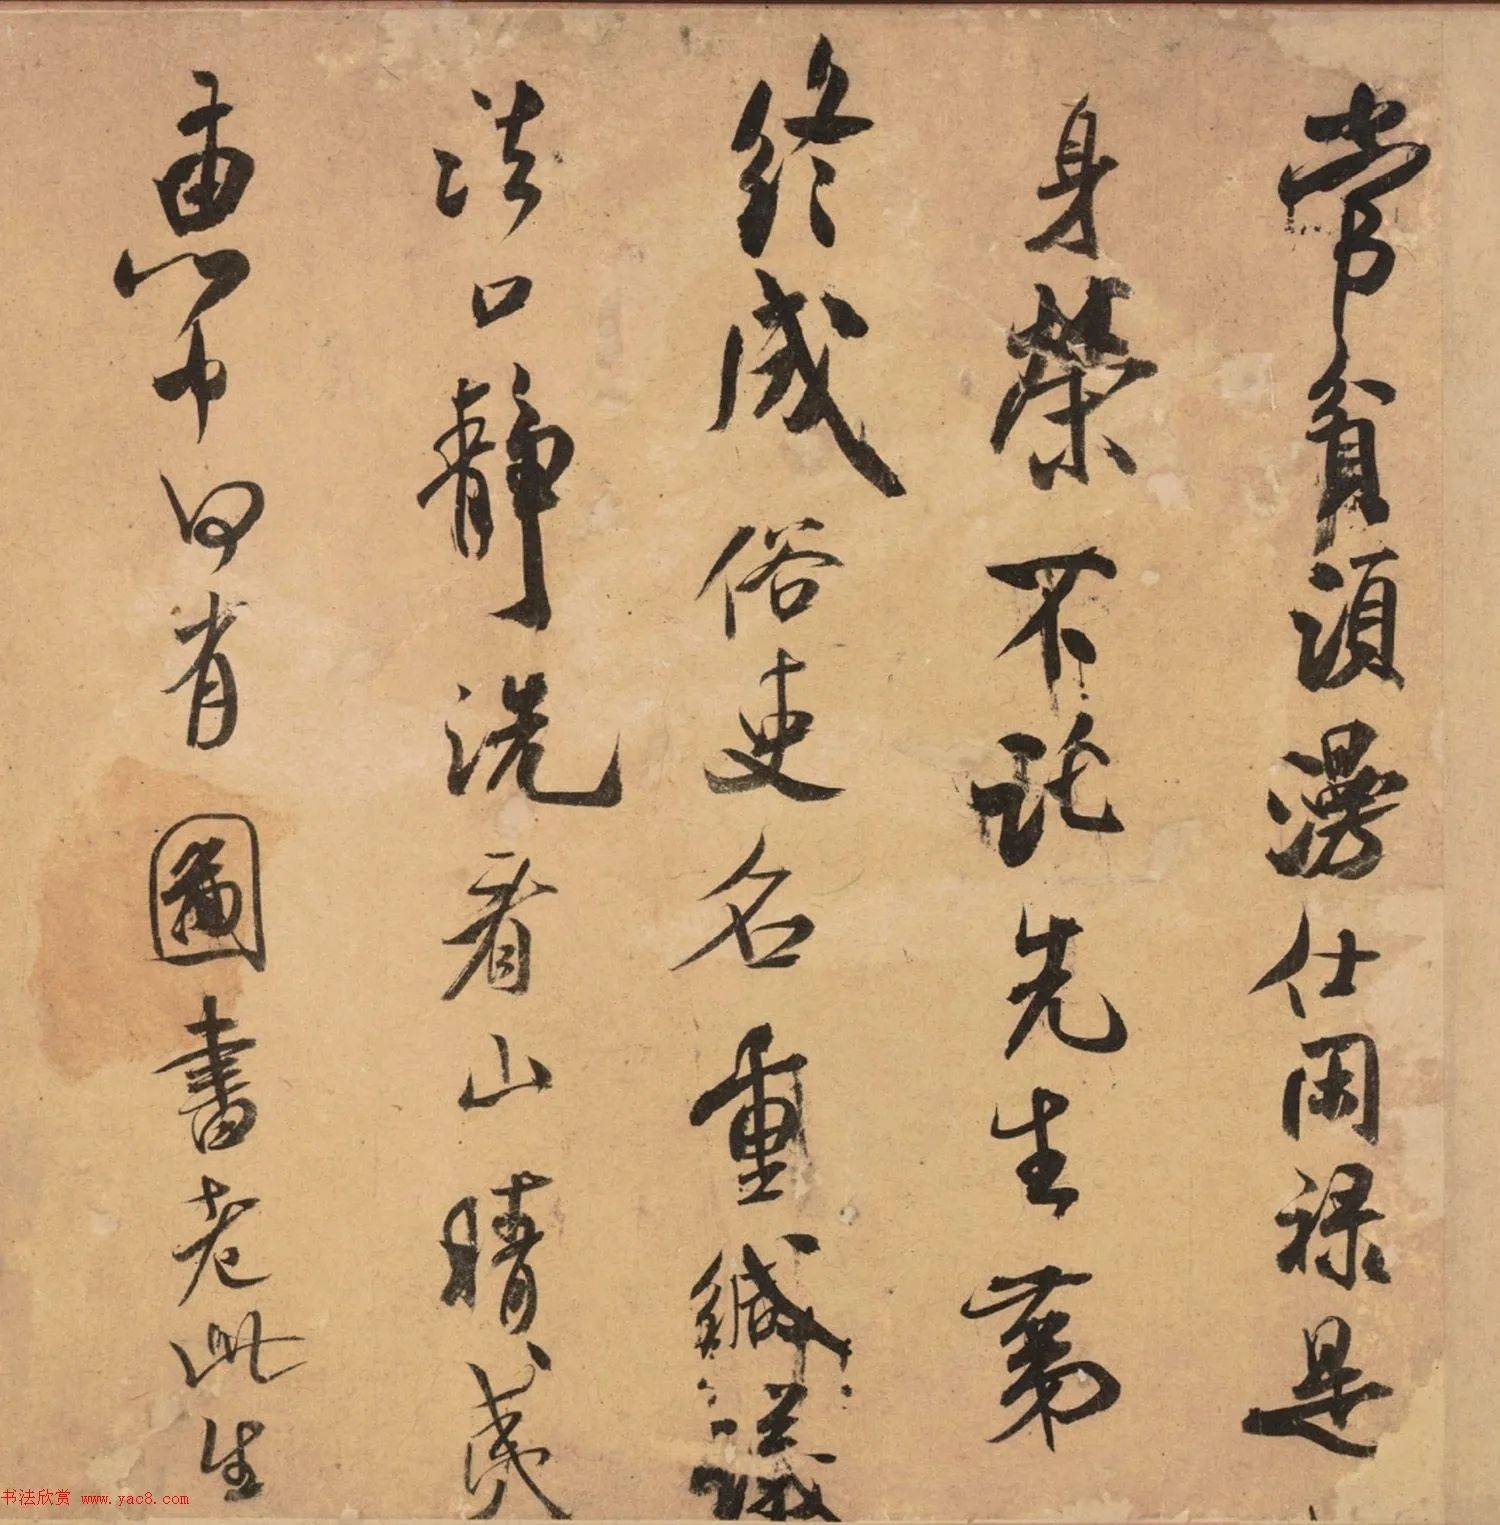 常貧須漫仕閑禄是
身榮不託先生第
終成俗吏名重緘議
法口靜洗看山晴夷
惠中何有圖書老此生
书法欣赏 www.yac8.com